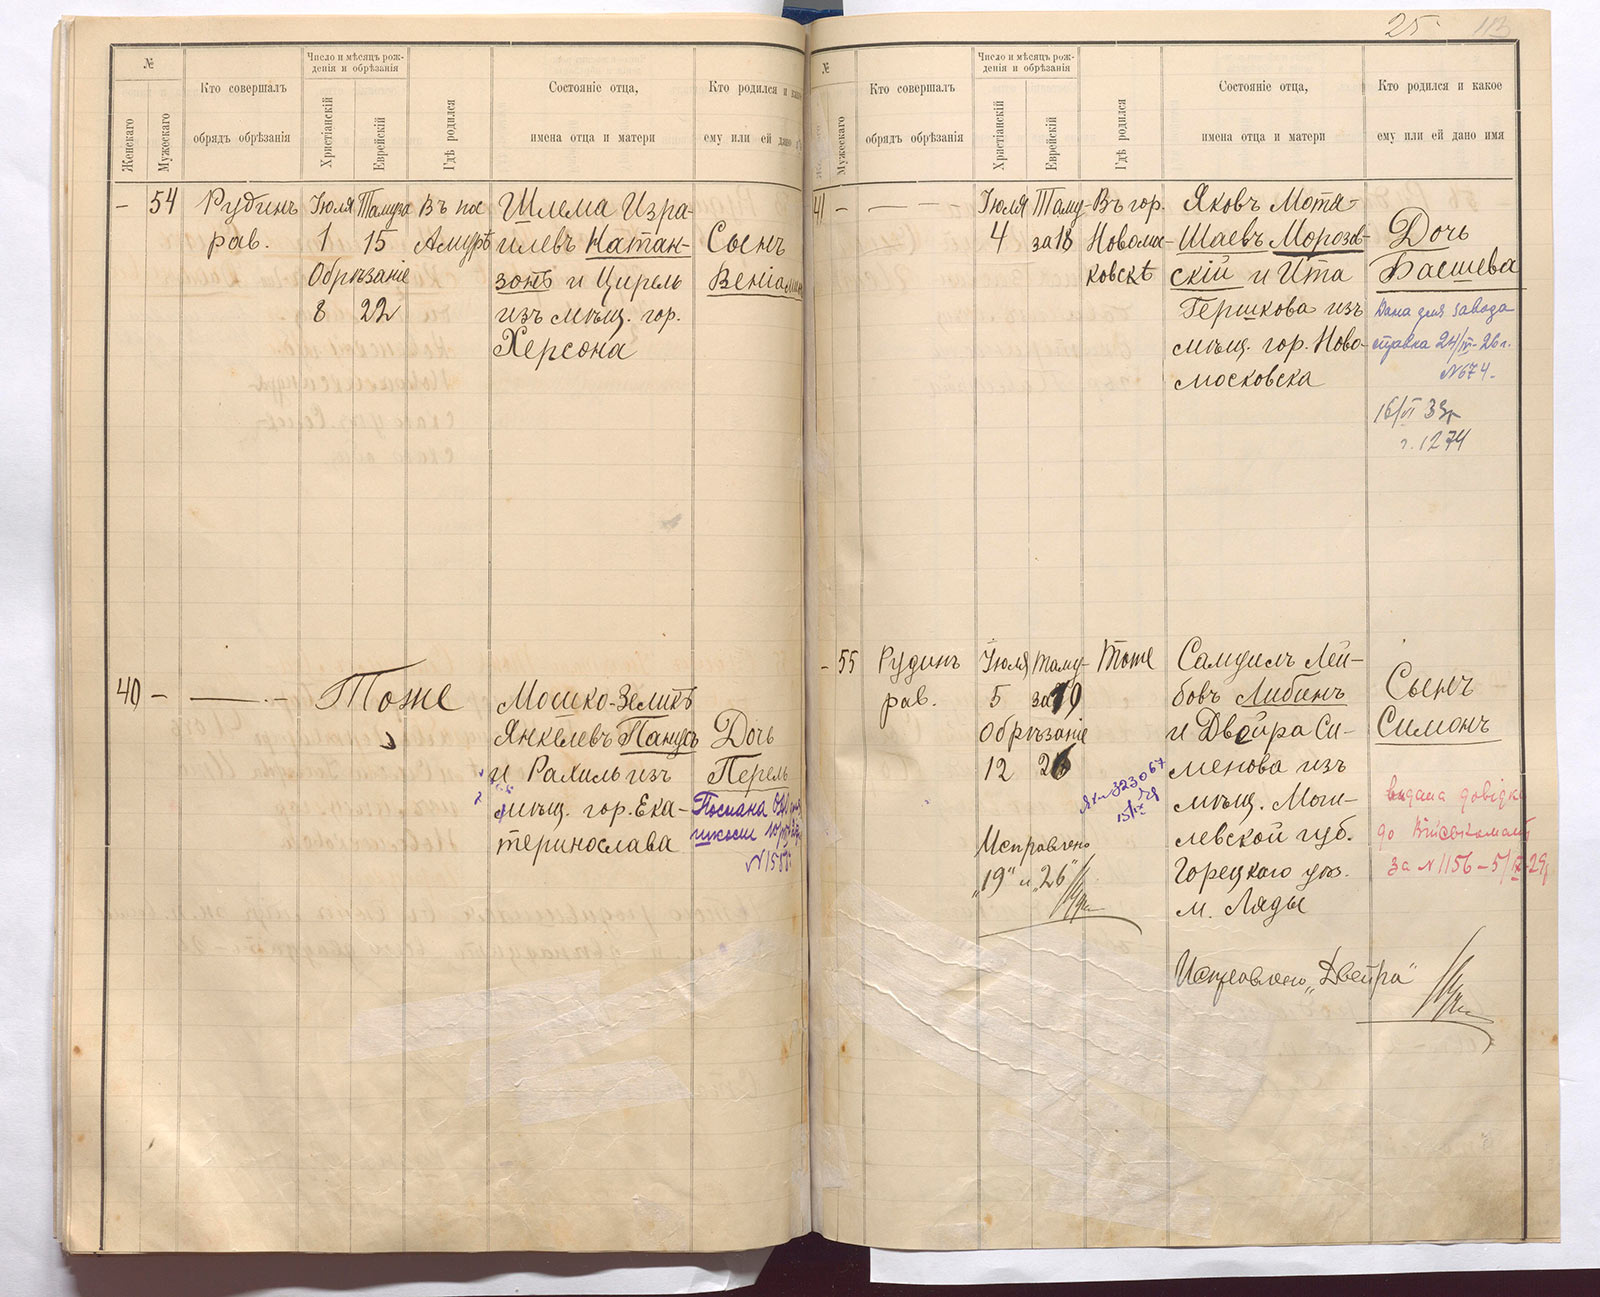 №
Женскаго
Мужескаго
Кто совершалъ
обрядъ обрѣзанія
Число и мѣсяцъ рож-
денія и обрѣзанія
Христіанскій
Еврейскій
Гдѣ родился
Состояніе отца,
имена отца и матери
Кто родился и
ему или ей дано
– 54
Рубинъ
рав.
Іюля
1
Тамуза
15
Обрѣзаніе
8 22
Въ пос
Амурѣ
Шлема Изра-
илевъ Натан-
зонъ и Цирель
изъ мѣщ. гор.
Херсона
Сынъ
Веніамин
40 –
Тоже
Мошко-Зеликъ
Янкелевъ
и Рахиль изъ
мѣщ. гор. Ека-
теринослава
Дочь
Перель
25
№
Мужескаго
Кто совершалъ
обрядъ обрѣзанія
Число и мѣсяцъ рож-
денія и обрѣзанія
Христіанскій
Еврейскій
Гдѣ родился
Состояніе отца,
имена отца и матери
Кто родился и какое
ему или ей дано имя
41 –
Іюля
4
Таму-
за 18
Въ гор.
Новомос-
ковскѣ
Яковъ Мота-
Шаевъ Морозов-
скій и Ита
Гершкова изъ
мѣщ. гор. Ново-
московска
Дочь
Басшева
Дана для завода
справка 24/III-26 г.
№ 674.
16/VI 39г
1274
– 55
Рудинъ
рав.
Іюля
5
Таму-
за 19
Обрѣзаніе
12 26
Исправлено
„19“ и „26“
Тоже
Самуилъ Лей-
бовъ Либинъ
и Двейра Си-
менова изъ
мѣщ. Моги-
левской губ.
Горецкаго уѣз.
м. Ляды
Исправлено „Двейра“
Сынъ
Симонъ
видана довідка
до Військкомат
за № 1156 – 5/